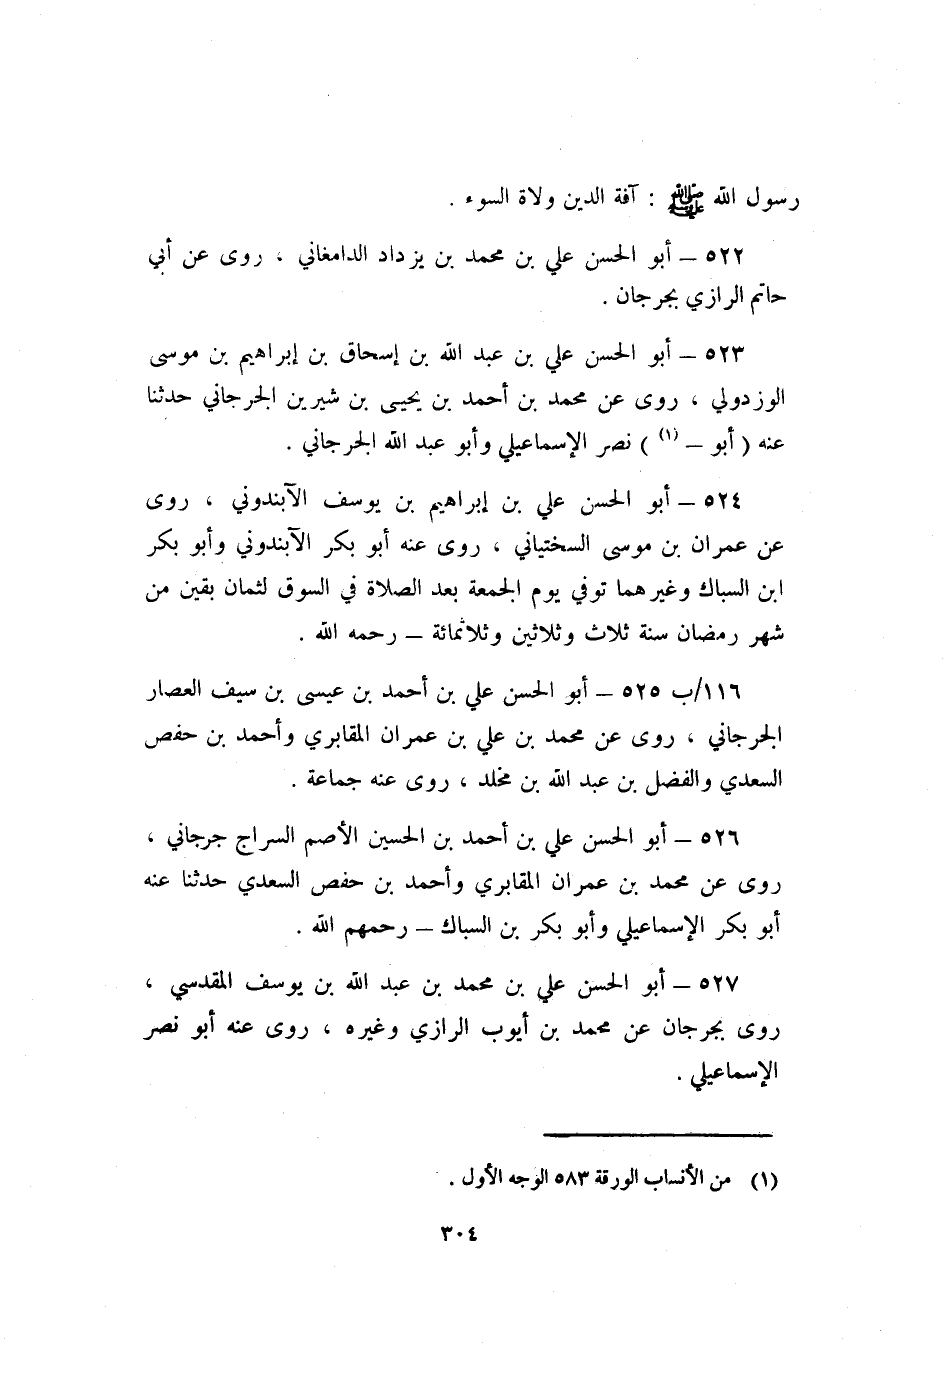 رسول الله ﷺ : آفة الدين ولاة السوء .
٥٢٢ – أبو الحسن علي بن محمد بن يزداد الدامغاني ، روى عن أبي
حاتم الرازي بجرجان .
٥٢٣ – أبو الحسن علي بن عبد الله بن إسحاق بن إبراهيم بن موسى
الوزدولي ، روى عن محمد بن أحمد بن يحيى بن شيرين الجرجاني حدثنا
عنه ( أبو – (١) ) نصر الإسماعيلي وأبو عبد الله الجرجاني .
٥٢٤ – أبو الحسن علي بن إبراهيم بن يوسف الآبندوني ، روى
عن عمران بن موسى السختياني ، روى عنه أبو بكر الآبندوني وأبو بكر
ابن السباك وغيرهما توفي يوم الجمعة بعد الصلاة في السوق لثمان بقين من
شهر رمضان سنة ثلاث وثلاثين وثلاثمائة – رحمه الله .
١١٦/ب ٥٢٥ – أبو الحسن علي بن أحمد بن عيسى بن سيف العصار
الجرجاني ، روى عن محمد بن علي بن عمران المقابري وأحمد بن حفص
السعدي والفضل بن عبد الله بن مخلد ، روى عنه جماعة .
٥٢٦ – أبو الحسن علي بن أحمد بن الحسين الأصم السراج جرجاني ،
روى عن محمد بن عمران المقابري وأحمد بن حفص السعدي حدثنا عنه
أبو بكر الإسماعيلي وأبو بكر بن السباك – رحمهم الله .
٥٢٧ – أبو الحسن علي بن محمد بن عبد الله بن يوسف المقدسي ،
روى بجرجان عن محمد بن أيوب الرازي وغيره ، روى عنه أبو نصر
الإسماعيلي .
(١) من الأنساب الورقة ٥٨٣ الوجه الأول .
٣٠٤